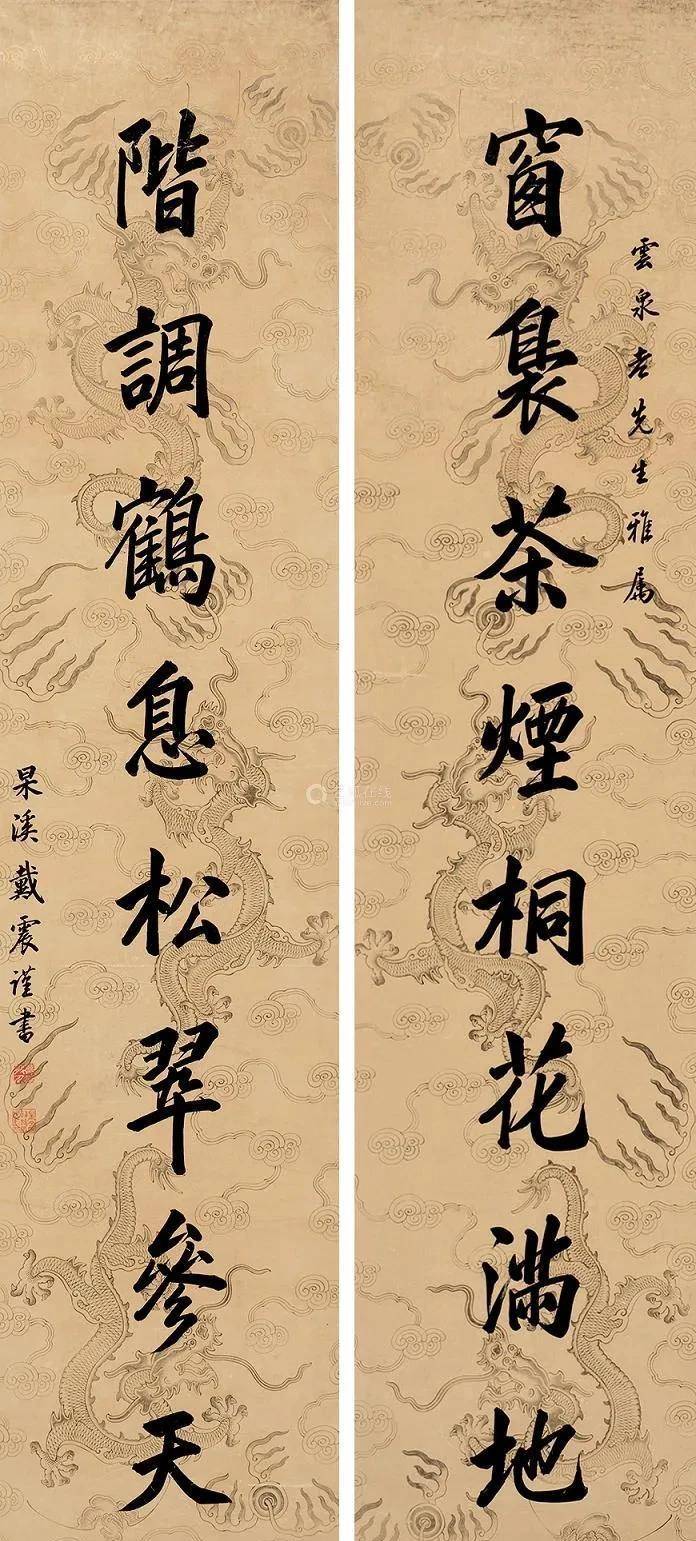 雲泉老先生雅属
窗裊茶煙桐花滿地
階調鶴息松翠參天
杲溪戴震謹書